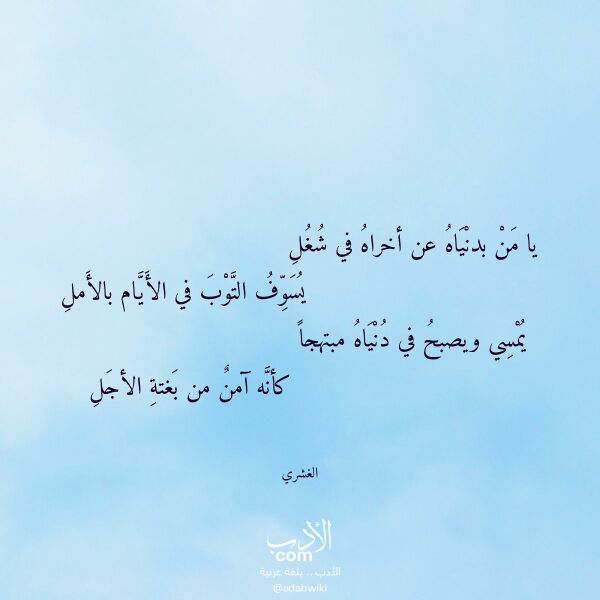 يا مَنْ بدنْيَاهُ عن أخراهُ في شُغُلِ
يُسَوِّفُ التَّوْبَ في الأَيَّام بالأَملِ
يُمْسِي ويصبحُ في دُنْيَاهُ مبتهجاً
كأنَّه آمنٌ من بَغتةِ الأجَلِ
الغشري
الأدب
.com
الأدب .. بلغة عربية
@adabwiki